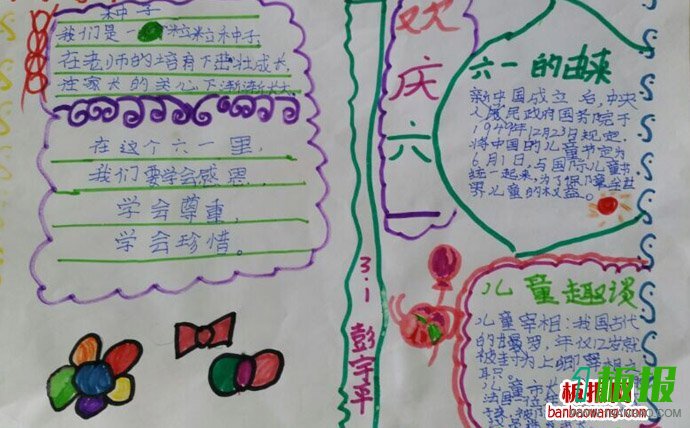 种子
我们是一粒粒种子
在老师的培育下茁壮成长
在家长的关心下渐渐长大
在这个六一里，
我们要学会感恩，
学会尊重，
学会珍惜。
欢
庆
六
一
3.1 彭宇平
六一的由来
新中国成立后，中央
人民政府国务院于
1949年12月23日规定，
将中国的儿童节定为
6月1日，与国际儿童节
统一起来。为了保障全世
界儿童的权益。
儿童趣谈
儿童宰相：我国古代
的甘罗，年仅12岁就
被封为上卿(宰相之
板报网
banbaowang.com
板报